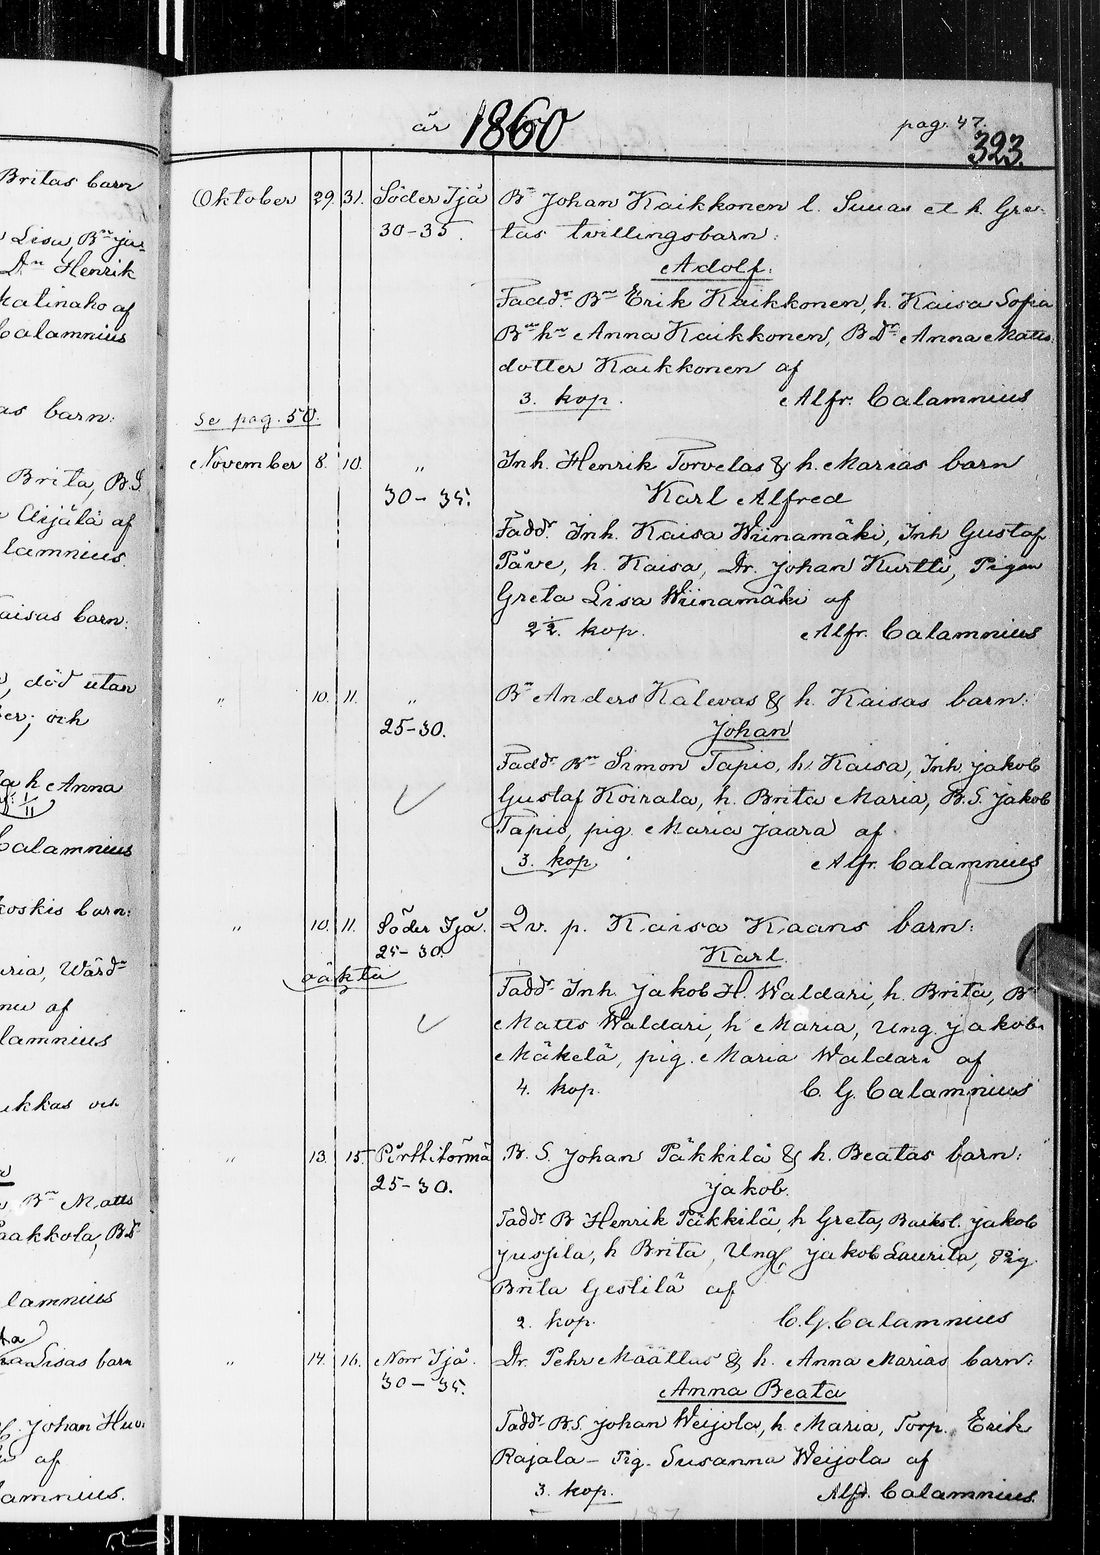 år 1860 pag. 47.
323.
Britas barn
Lisa, Bn Ja-
Dn Henrik
Katinaho af
Calamnius
barn:
Brita, B.S.
Äijälä af
lamnius.
Kaisas barn:
död utan
och
h Anna
Calamnius
koskis barn:
Wärdn
af
lamnius
Bn Matts
aakkola, B.D
lamnius
Lisas barn
Johan Huo
af
lamnius.
Oktober 29. 31. Söder Ijå Bn Johan Kaikkonen l. Suuas et h. Gre-
30-35. tas tvillingsbarn:
Adolf.
Faddr Bn Erik Kaikkonen, h. Kaisa Sofia
Bn hn Anna Kaikkonen, B Dr Anna Matts
dotter Kaikkonen af
3. kop. Alfr. Calamnius
Se pag. 50.
November 8. 10. " Inh. Henrik Torvelas & h. Marias barn
30-35. Karl Alfred
Faddr. Inh. Kaisa Wiinamäki, Inh Gustaf
Påve, h. Kaisa, Dr. Johan Kurtti, Pigan
Greta Lisa Wiinamäki af
2½. kop. Alfr. Calamnius
" 10. 11. " Bn Anders Kalevas & h. Kaisas barn:
25-30. Johan
Faddr Bn Simon Tapio, h. Kaisa, Inh. Jakob
Gustaf Koirala, h. Brita Maria, B.S. Jakob
Tapio, pig. Maria Jaara af
3. kop Alfr. Calamnius
" 10. 11. Söder Ijå. Qv. p. Kaisa Kaans barn:
25-30. Karl.
oäkta
Faddr Inh. Jakob H. Waldari, h. Brita, Bn
Matts Waldari, h Maria, Ung. Jakob
Mäkelä, pig. Maria Waldari af
4. kop. C. G. Calamnius
" 13. 15. Pirttitörmä B. S. Johan Päkkilä & h. Beatas barn:
25-30. Jakob.
Faddr B Henrik Päkkilä, h Greta, Jakob
h Brita, Ungl Jakob Laurila, Pig.
Brita Gestilä af
2. kop. C.G. Calamnius
" 14. 16. Norr Ijå. Dr. Pehr Määttas & h. Anna Marias barn:
30-35. Anna Beata
Faddr B.S. Johan Weijola, h. Maria, Torp. Erik
Rajala - Pig. Susanna Weijola af
3. kop. Alfr. Calamnius